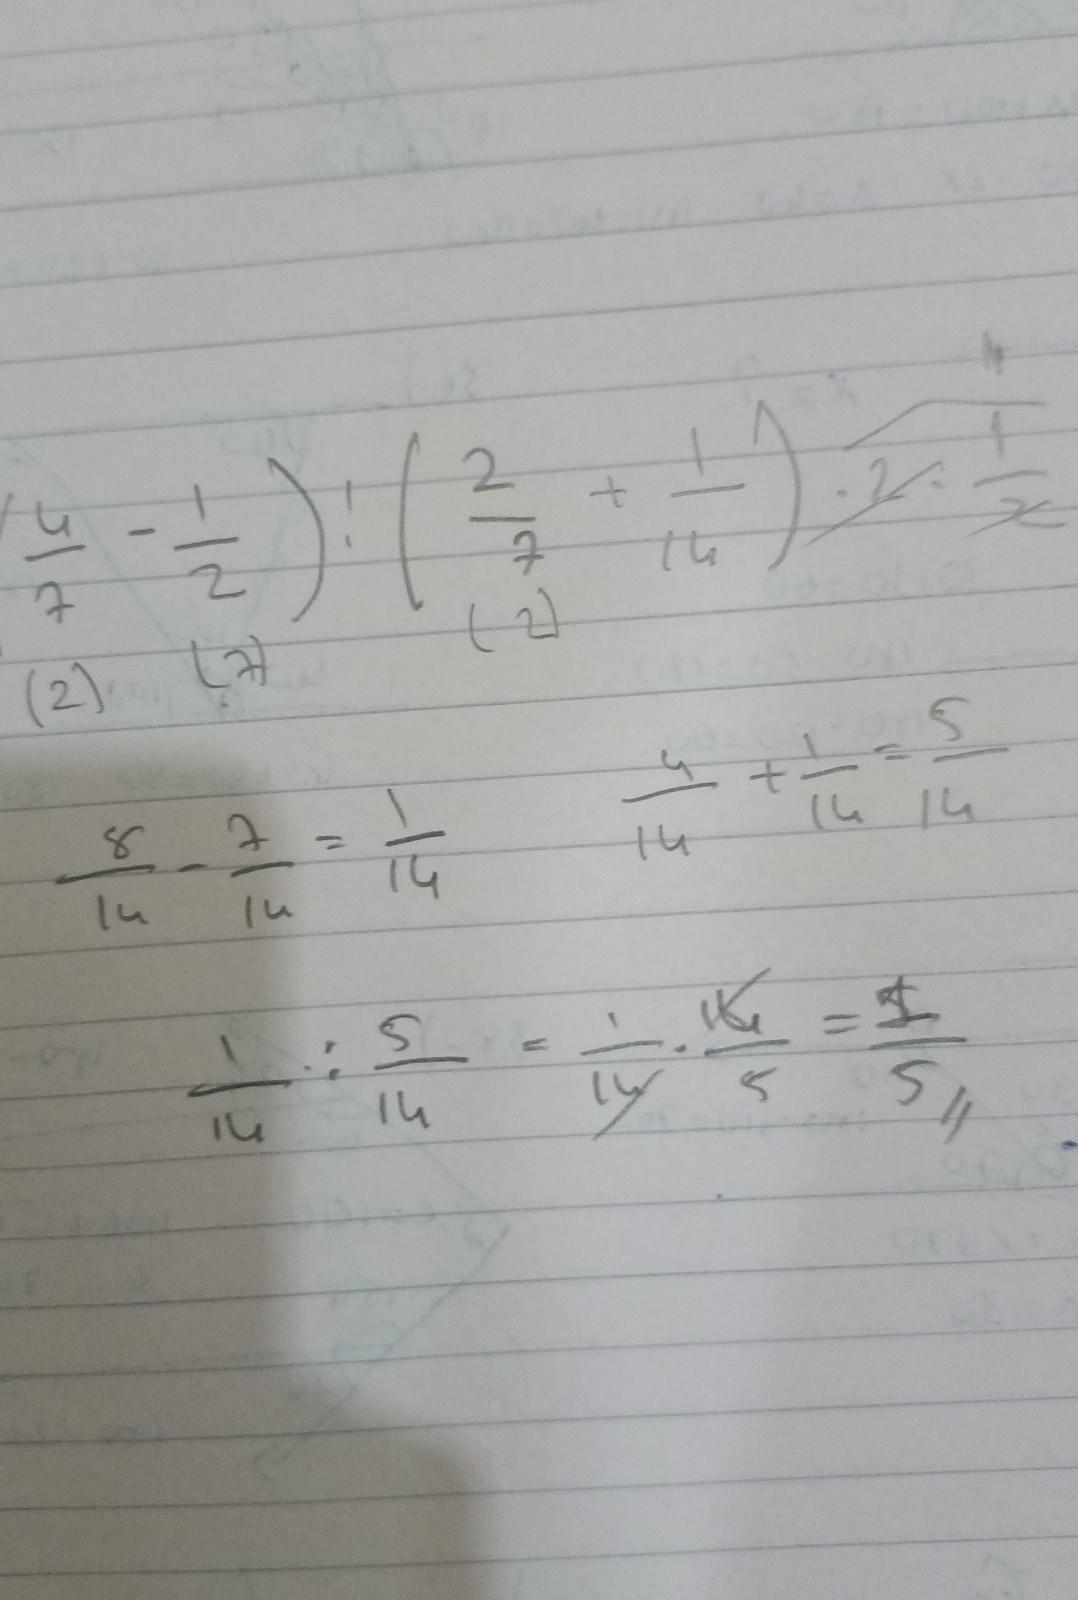 (4/7 - 1/2) : (2/7 + 1/14) . 2 . 1/2
(2) (7) (2)
8/14 - 7/14 = 1/14 4/14 + 1/14 = 5/14
1/14 ÷ 5/14 = 1/14 . 14/5 = 1/5 //